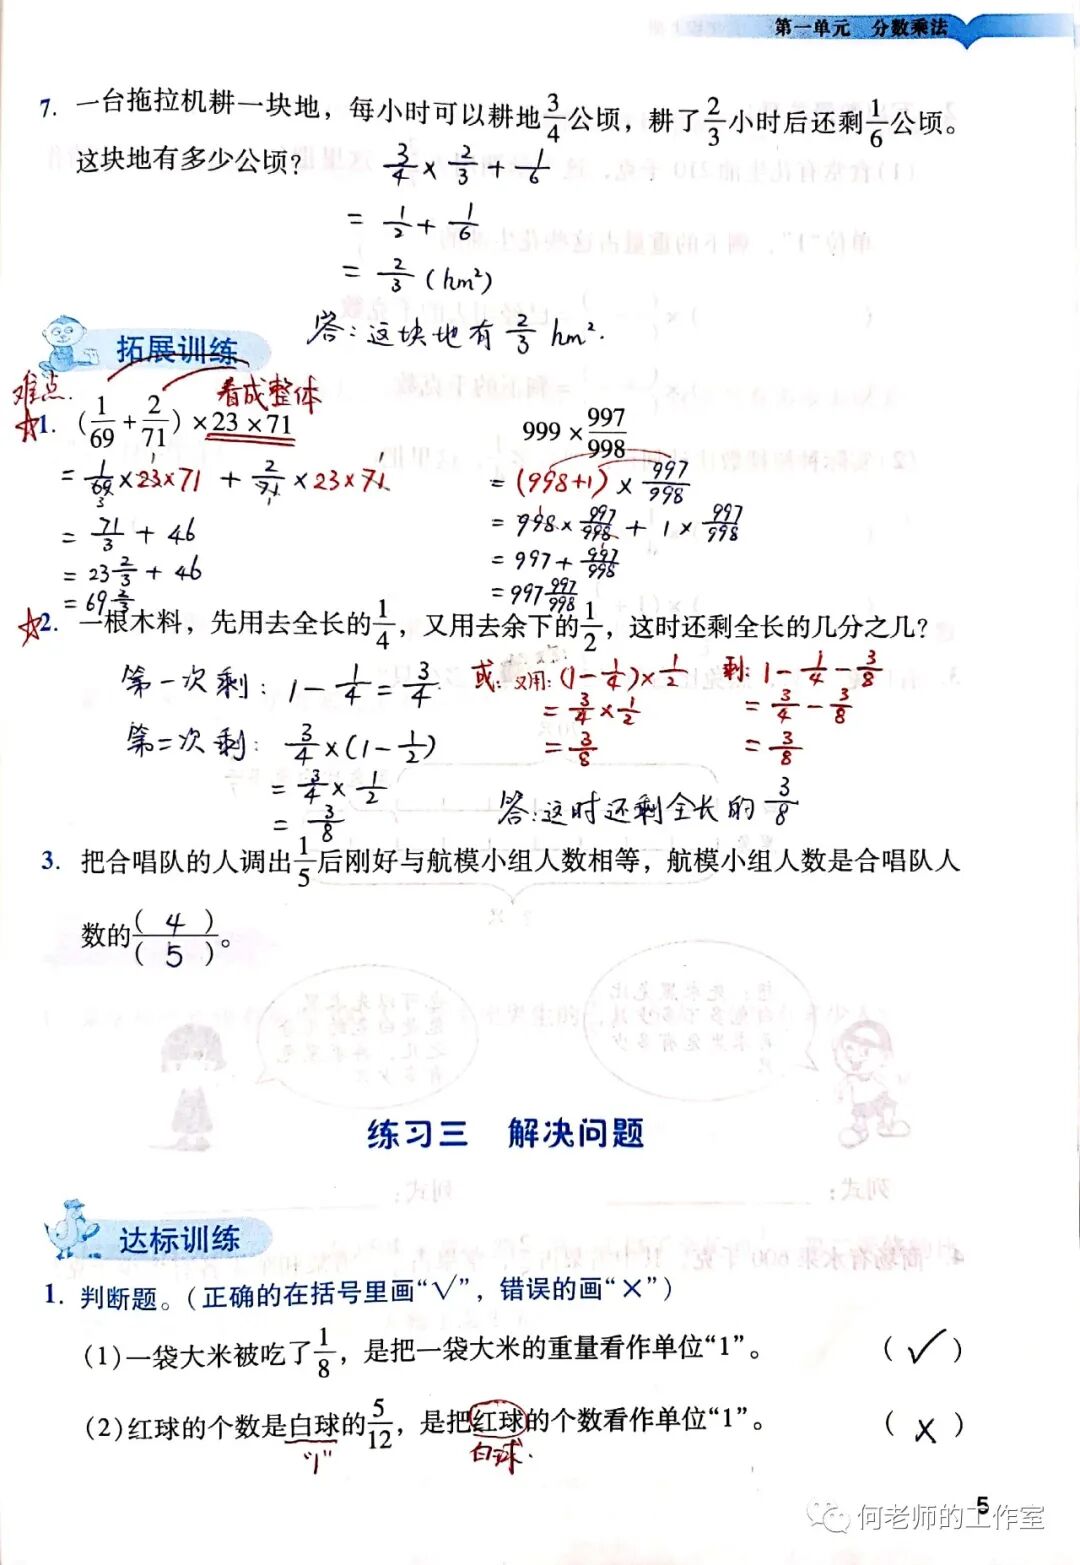 第一单元 分数乘法
7. 一台拖拉机耕一块地，每小时可以耕地3/4公顷，耕了2/3小时后还剩1/6公顷。
这块地有多少公顷？ 3/4 × 2/3 + 1/6
= 1/2 + 1/6
= 2/3 (hm²)
答：这块地有 2/3 hm².
拓展训练
难点. 看成整体
☆1. (1/69 + 2/71) × 23 × 71
= 1/69 × 23 × 71 + 2/71 × 23 × 71
= 71/3 + 46
= 23 2/3 + 46
= 69 2/3
999 × 997/998
= (998+1) × 997/998
= 998 × 997/998 + 1 × 997/998
= 997 + 997/998
= 997 997/998
☆2. 一根木料，先用去全长的1/4，又用去余下的1/2，这时还剩全长的几分之几？
第一次剩：1 - 1/4 = 3/4
第二次剩：3/4 × (1 - 1/2)
= 3/4 × 1/2
= 3/8
或：又用：(1 - 1/4) × 1/2
= 3/4 × 1/2
= 3/8
剩：1 - 1/4 - 3/8
= 3/4 - 3/8
= 3/8
答：这时还剩全长的 3/8
3. 把合唱队的人调出1/5后刚好与航模小组人数相等，航模小组人数是合唱队人
数的( 4 )/( 5 )。
练习三 解决问题
达标训练
1. 判断题。（正确的在括号里画“√”，错误的画“×”）
(1)一袋大米被吃了1/8，是把一袋大米的重量看作单位“1”。 ( ✓ )
(2)红球的个数是白球的5/12，是把红球的个数看作单位“1”。 ( × )
“1” 白球.
5
何老师的工作室